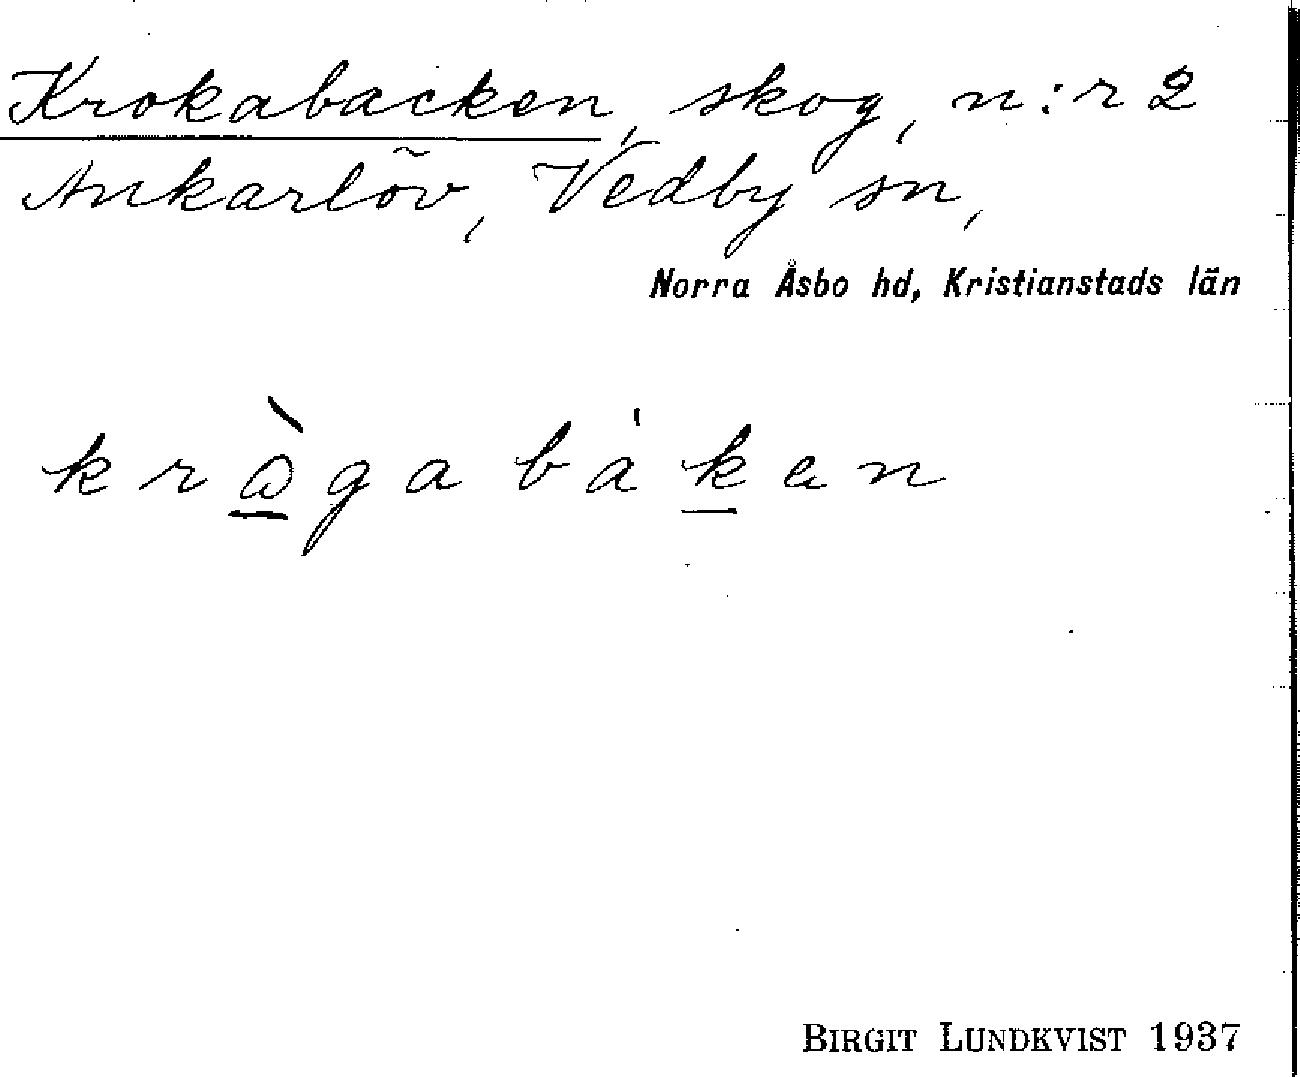 Krokabacken, skog, n:r 2
Ankarlöv, Vedby sn,
Norra Åsbo hd, Kristianstads län
krògabáken
BIRGIT LUNDKVIST 1937